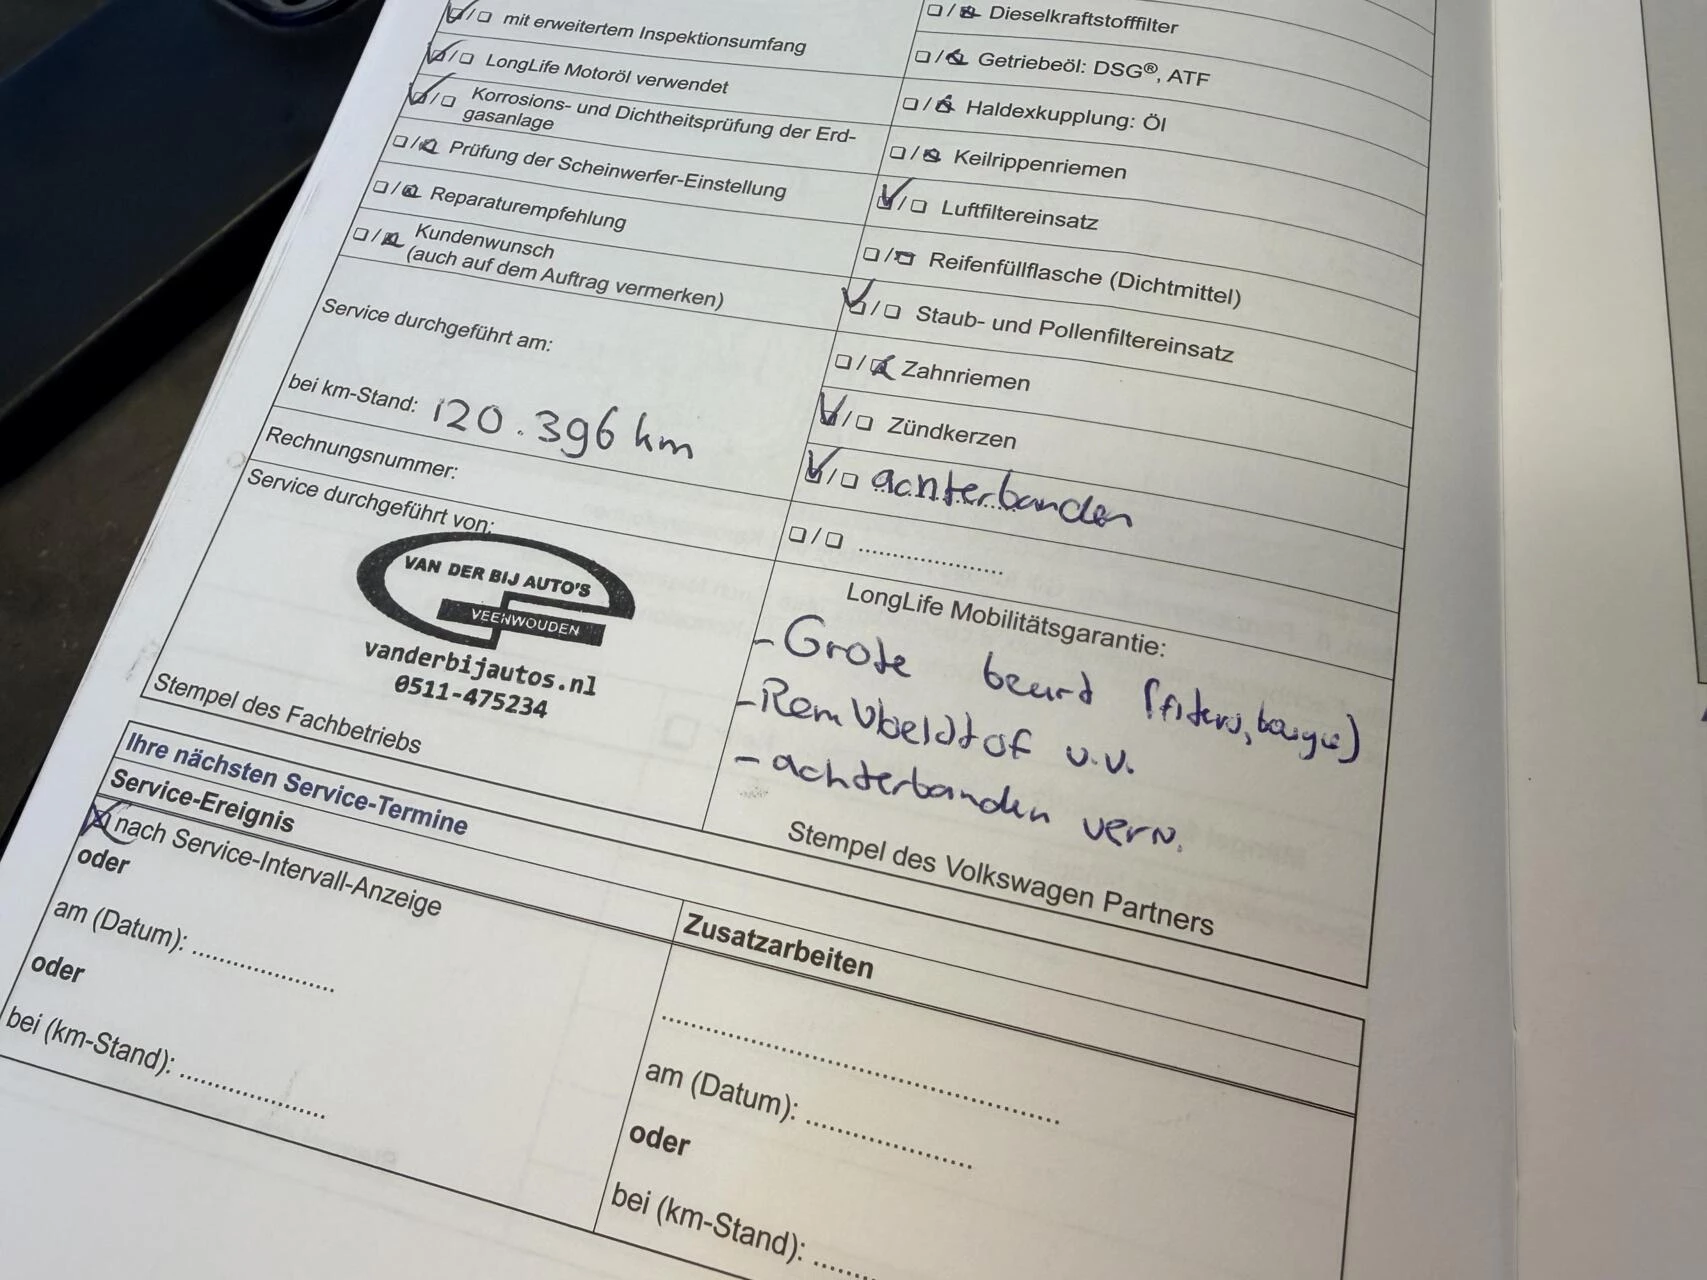 mit erweitertem Inspektionsumfang
LongLife Motoröl verwendet
Korrosions- und Dichtheitsprüfung der Erd-
gasanlage
Prüfung der Scheinwerfer-Einstellung
Reparaturempfehlung
Kundenwunsch
(auch auf dem Auftrag vermerken)
Service durchgeführt am:
bei km-Stand: 120.396 km
Rechnungsnummer:
Service durchgeführt von:
VAN DER BIJ AUTO'S
VEENWOUDEN
vanderbijautos.nl
0511-475234
Stempel des Fachbetriebs
Dieselkraftstofffilter
Getriebeöl: DSG®, ATF
Haldexkupplung: Öl
Keilrippenriemen
Luftfiltereinsatz
Reifenfüllflasche (Dichtmittel)
Staub- und Pollenfiltereinsatz
Zahnriemen
Zündkerzen
achterbanden
LongLife Mobilitätsgarantie:
- Grote beurt (filters, bougie)
- Remvloeistof v.v.
- achterbanden verv.
Stempel des Volkswagen Partners
Ihre nächsten Service-Termine
Service-Ereignis
nach Service-Intervall-Anzeige
oder
am (Datum):
oder
bei (km-Stand):
Zusatzarbeiten
am (Datum):
oder
bei (km-Stand):